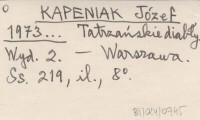 KAPENIAK Józef
1973... Tatrzańskie diabły
Wyd. 2. — Warszawa.
Ss. 219, il., 8°.